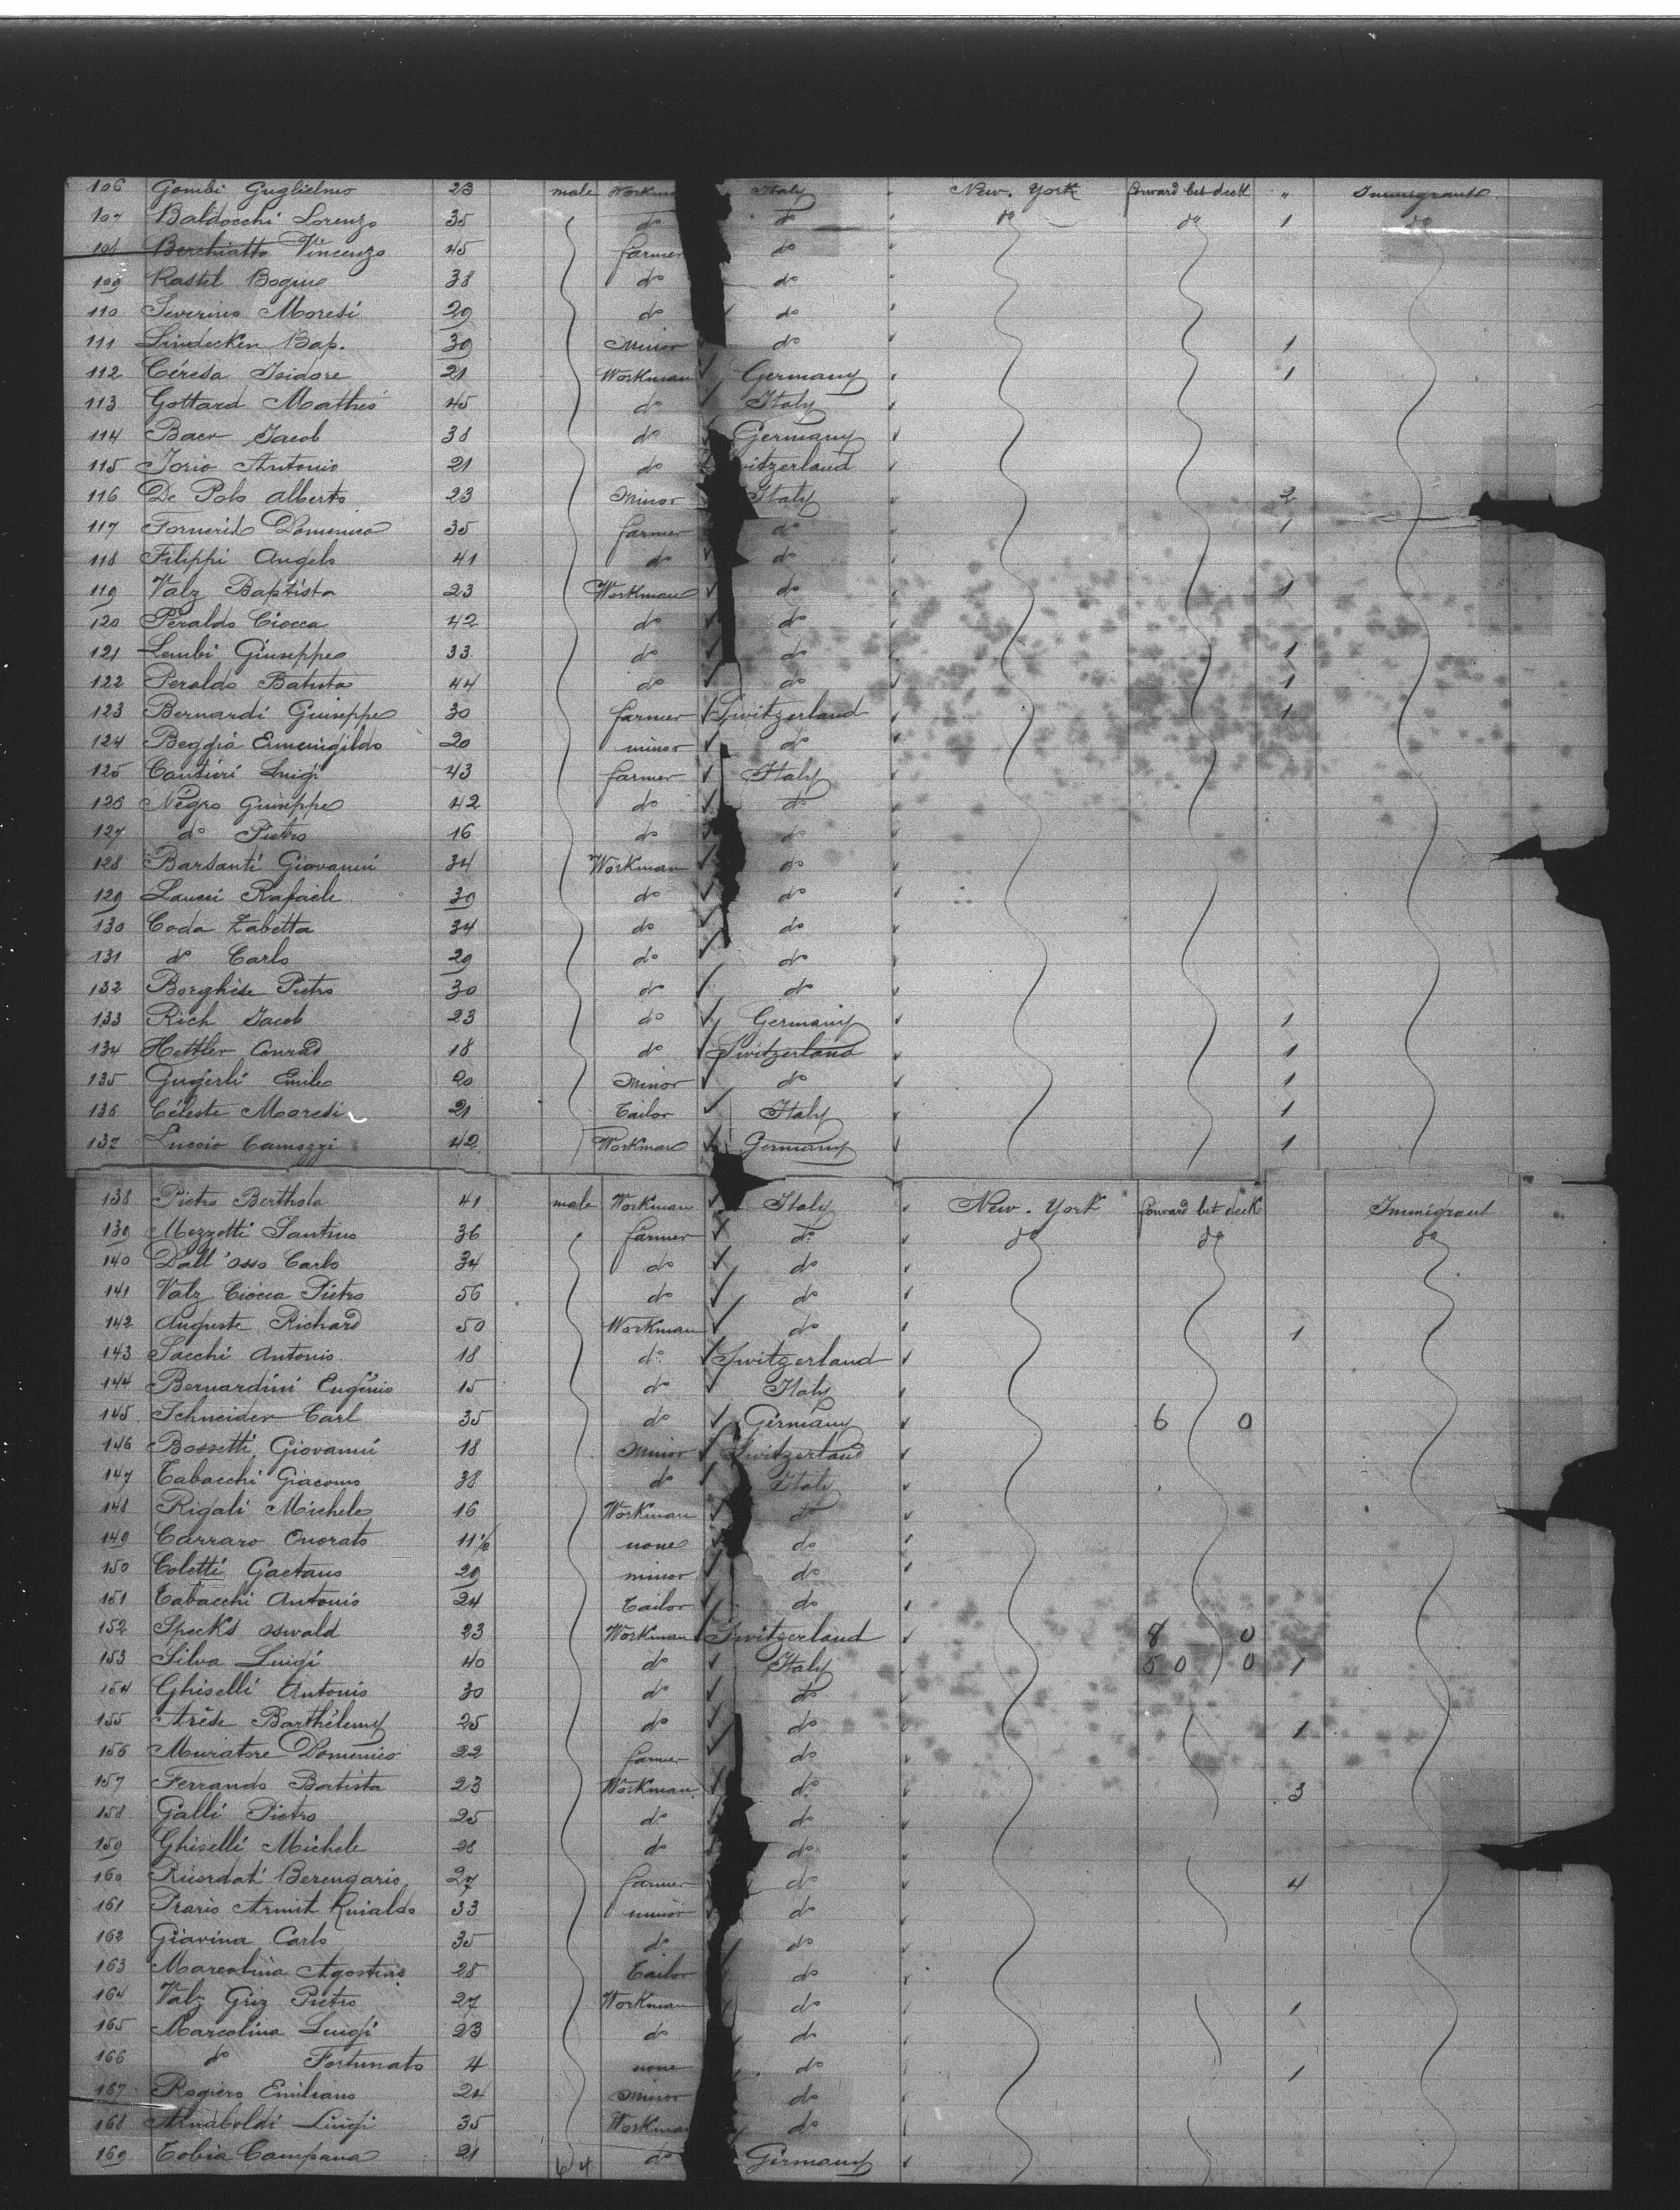 106 Gombi Guglielmo 23 male Workman Italy New. York forward bet deck " Immigrant
107 Baldocchi Lorenzo 35 do do do do 1 do
108 Berchiatto Vincenzo 45 farmer do
109 Rastel Bogne 38 do do
110 Severino Moresi 29 do do
111 Lindecken Bap. 39 Minor do 1
112 Céresa Isidore 21 Workman Germany 1
113 Gottard Matheo 45 do Italy
114 Baer Jacob 38 do Germany
115 Jorio Antonio 21 do witzerland
116 De Polo Alberto 23 Minor Italy 2
117 Fornerid Domenico 35 farmer do 1
118 Filippi Angelo 41 do do
119 Valz Baptista 23 Workman do 1
120 Peraldo Ciocca 42 do do
121 Lembi Giuseppe 33 do do 1
122 Peraldo Batista 44 do do 1
123 Bernardi Guiseppe 30 farmer Switzerland 1
124 Beggia Ermenigildo 20 minor do
125 Cantieri Luigi 43 farmer Italy
126 Negro Guiseppe 42 do do
127 do Pietro 16 do do
128 Barsanti Giovanni 34 Workman do
129 Laucci Rafaele 39 do do
130 Coda Zabetta 34 do do
131 do Carlo 29 do do
132 Borghese Pietro 30 do do
133 Rich Jacob 23 do Germany 1
134 Hettler Conrad 18 do Switzerland 1
135 Gugerli Emile 20 Minor do 1
136 Céleste Moresi 21 Tailor Italy 1
137 Luccio Camozzi 42 Workman Germany 1
138 Pietro Berthola 41 male Workman Italy New. York forward bet deck Immigrant
139 Mezzetti Santino 36 farmer do do do do
140 Dall'osso Carlo 34 do do
141 Valz Ciocca Pietro 56 do do
142 Auguste Richard 50 Workman do 1
143 Sacchi Antonio 18 do Switzerland
144 Bernardini Eugenio 15 do Italy
145 Schneider Carl 35 do Germany 6 0
146 Bossetti Giovanni 18 Minor Switzerland
147 Tabacchi Giacomo 38 do Italy
148 Rigali Michele 16 Workman do
149 Carraro Onorato 11½ none do
150 Coletti Gaetano 29 minor do
151 Tabacchi Antonio 24 Tailor do
152 Specks Oswald 23 Workman Switzerland 8 0
153 Silva Luigi 40 do Italy 50 0 1
154 Ghiselli Antonio 30 do do
155 Arése Barthélemy 25 do do 1
156 Muratore Dominico 22 farmer do
157 Ferrando Batista 23 Workman do 3
158 Galli Pietro 25 do do
159 Ghiselli Michele 28 do do
160 Ricordati Berengario 27 farmer do 4
161 Prario Armit Rinaldo 33 minor do
162 Giavina Carlo 35 do do
163 Marcolina Agostino 28 Tailor do
164 Valz Griz Pietro 27 Workman do 1
165 Marcolina Luigi 23 do do
166 do Fortunato 4 none do 1
167 Rogiero Emiliano 24 Minor do
168 Arnaboldi Luigi 35 Workman do
169 Tobia Campana 21 64 do Germany